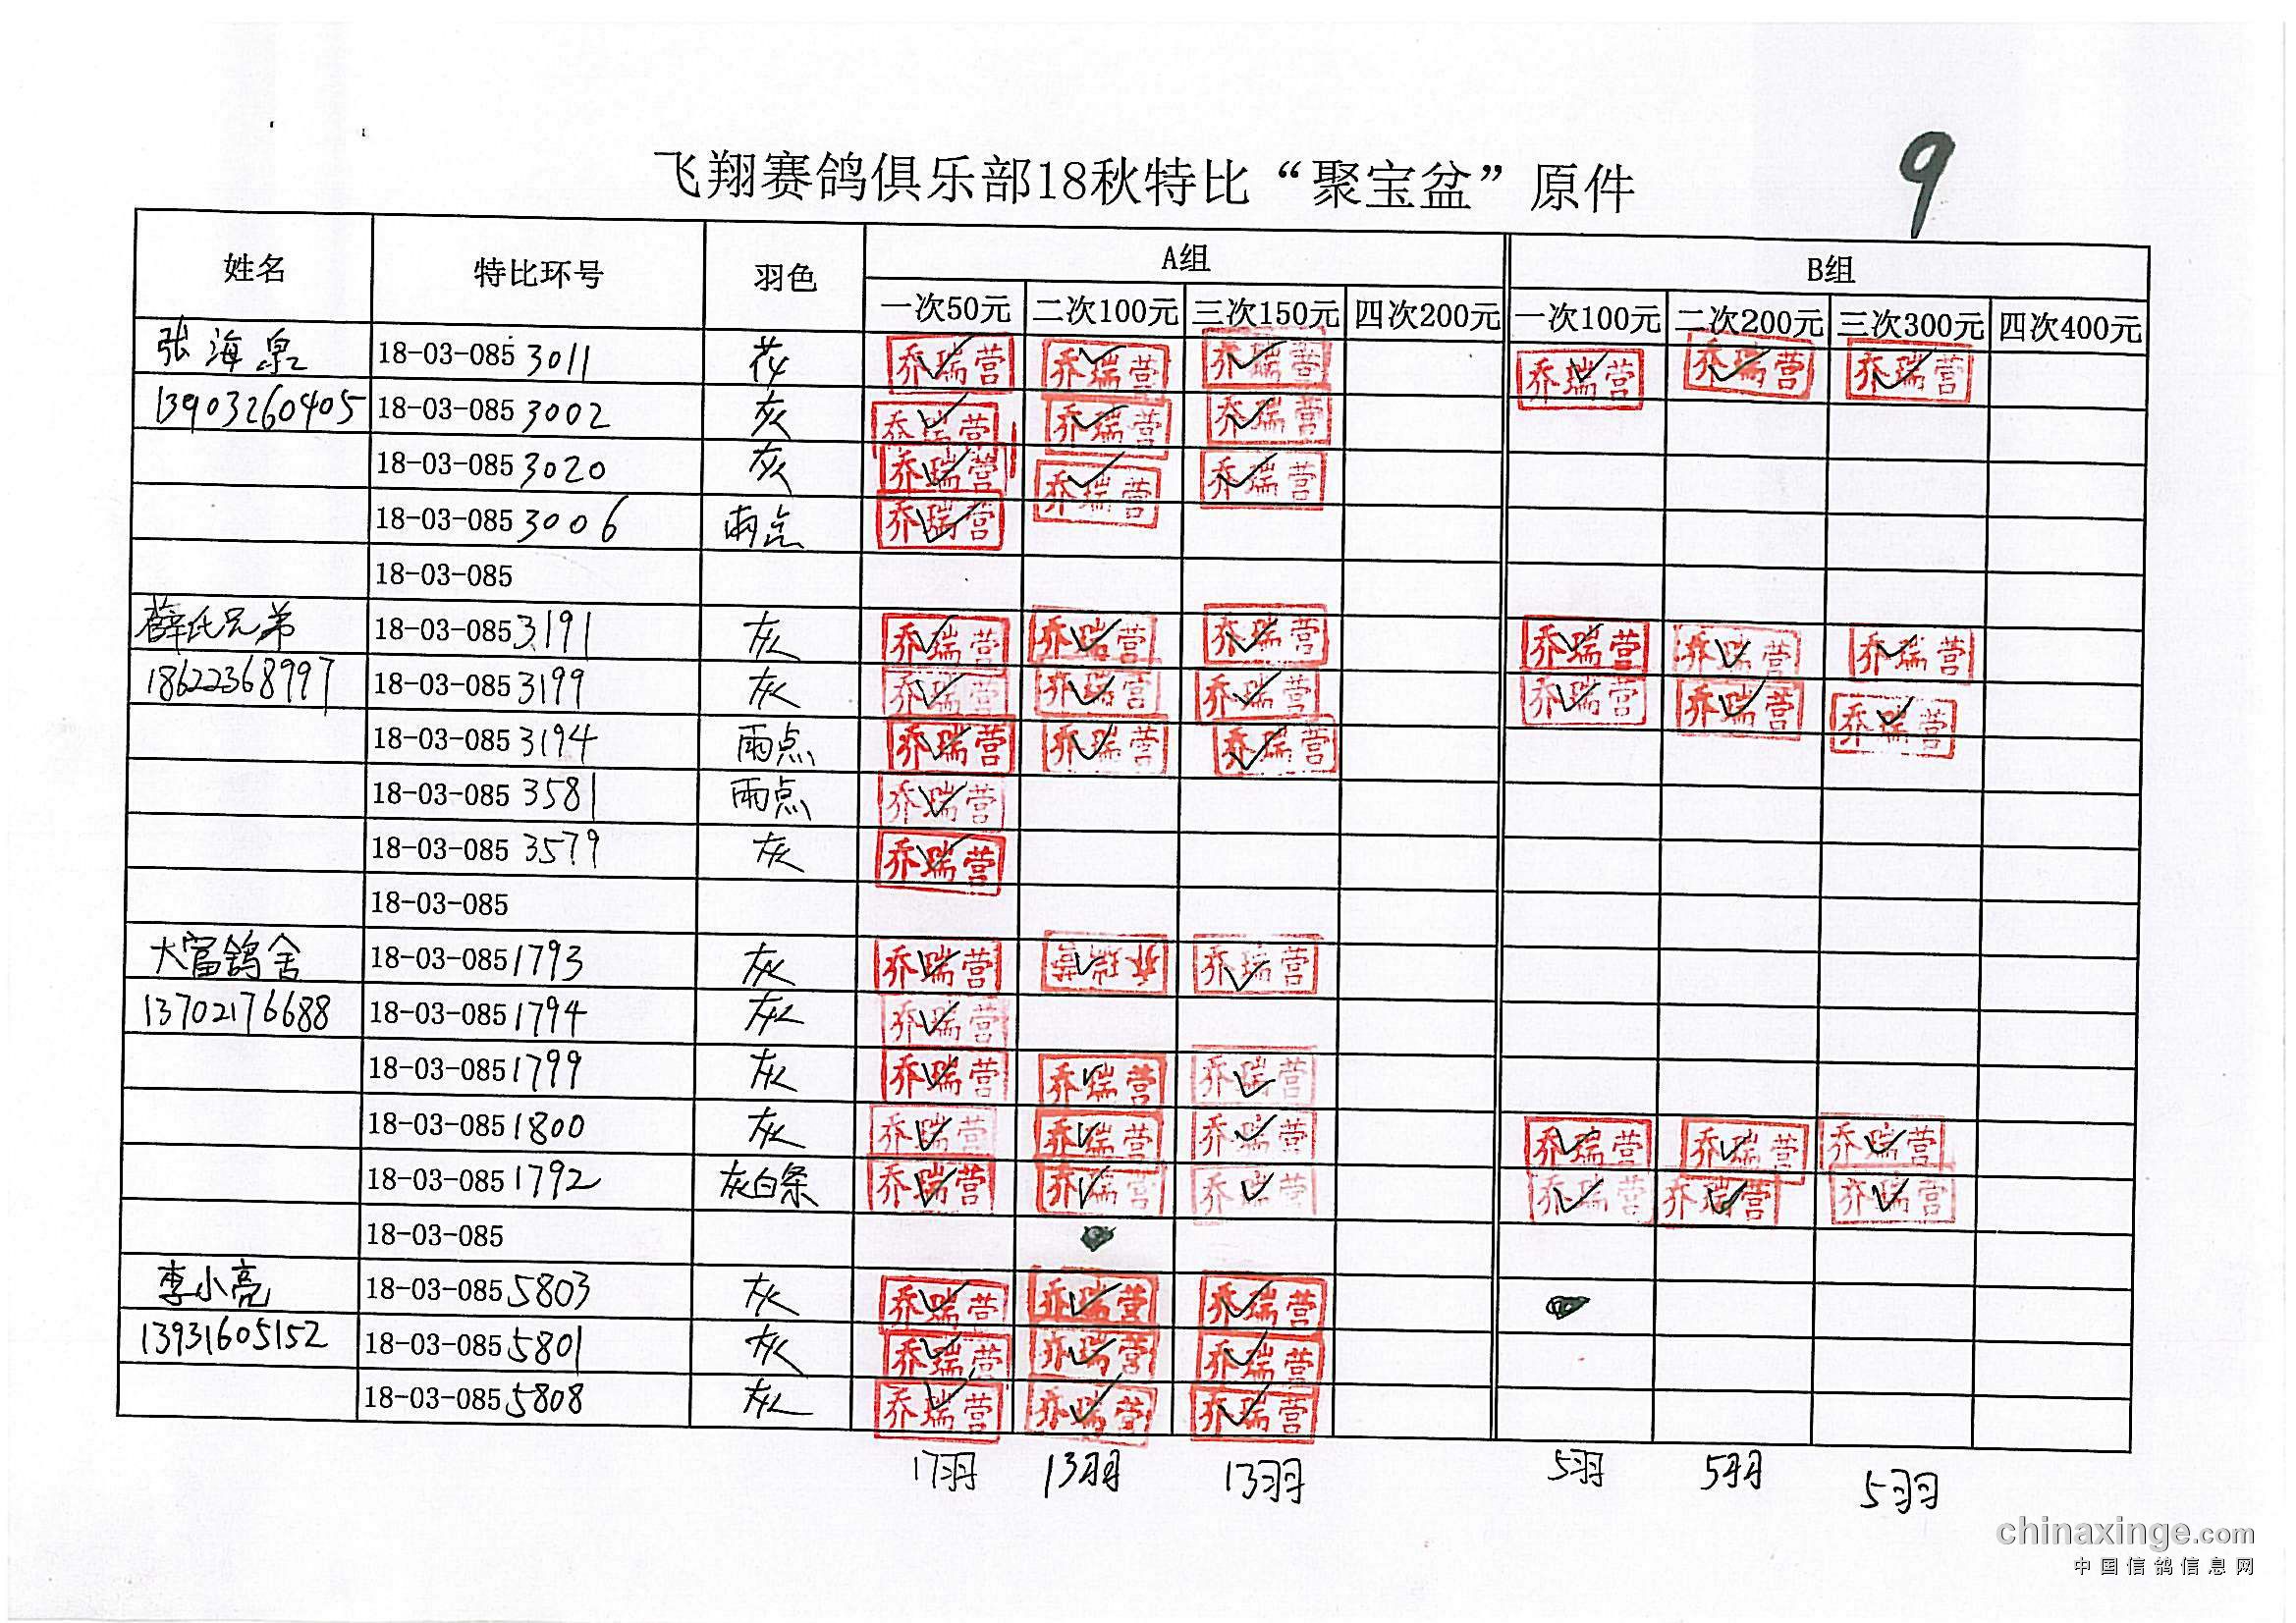 9
飞翔赛鸽俱乐部18秋特比“聚宝盆”原件
姓名 特比环号 羽色 A组 B组
一次50元 二次100元 三次150元 四次200元 一次100元 二次200元 三次300元 四次400元
张海泉 18-03-085 3011 花 乔瑞营 乔瑞营 乔瑞营 乔瑞营 乔瑞营 乔瑞营
13903260405 18-03-085 3002 灰 乔瑞营 乔瑞营 乔瑞营
18-03-085 3020 灰 乔瑞营 乔瑞营 乔瑞营
18-03-085 3006 雨点 乔瑞营
18-03-085
薛氏兄弟 18-03-085 3191 灰 乔瑞营 乔瑞营 乔瑞营 乔瑞营 乔瑞营 乔瑞营
18622368997 18-03-085 3199 灰 乔瑞营 乔瑞营 乔瑞营 乔瑞营 乔瑞营 乔瑞营
18-03-085 3194 雨点 乔瑞营 乔瑞营 乔瑞营
18-03-085 3581 雨点 乔瑞营
18-03-085 3579 灰 乔瑞营
18-03-085
大富鸽舍 18-03-085 1793 灰 乔瑞营 乔瑞营 乔瑞营
13702176688 18-03-085 1794 灰 乔瑞营
18-03-085 1799 灰 乔瑞营 乔瑞营 乔瑞营
18-03-085 1800 灰 乔瑞营 乔瑞营 乔瑞营 乔瑞营 乔瑞营 乔瑞营
18-03-085 1792 灰白条 乔瑞营 乔瑞营 乔瑞营 乔瑞营 乔瑞营 乔瑞营
18-03-085
李小亮 18-03-085 5803 灰 乔瑞营 乔瑞营 乔瑞营
13931605152 18-03-085 5801 灰 乔瑞营 乔瑞营 乔瑞营
18-03-085 5808 灰 乔瑞营 乔瑞营 乔瑞营
17羽 13羽 13羽 5羽 5羽 5羽
chinaxinge.com
中国信鸽信息网